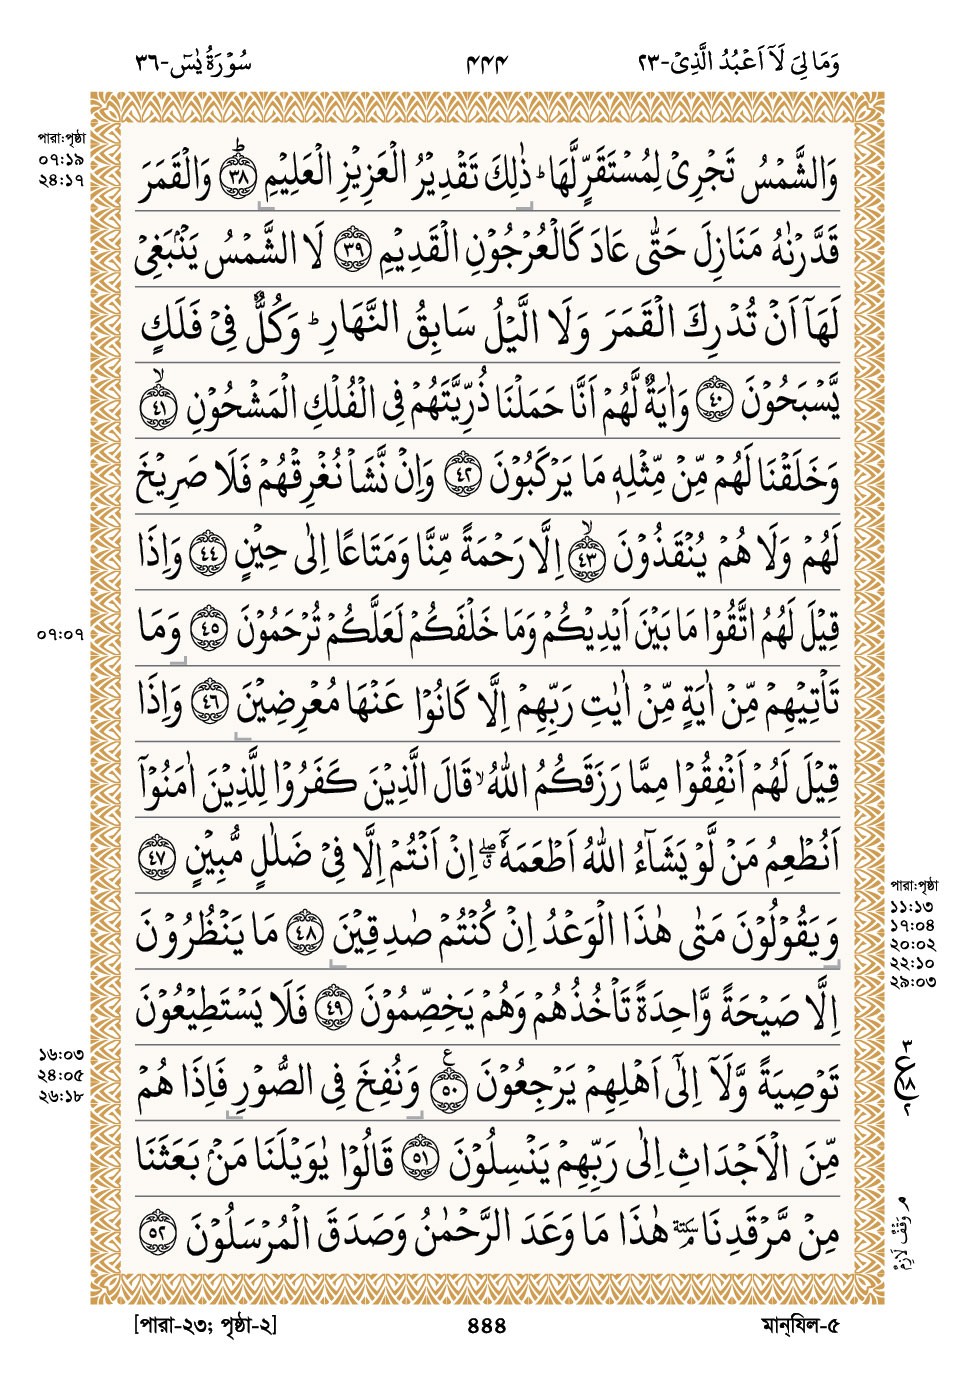 وَمَا لِيَ لَآ اَعْبُدُ الَّذِيْ-٢٣
۴۴۴
سُوْرَةُ يٰسٓ-٣٦
পারা:পৃষ্ঠা
০৭:১৯
২৪:১৭
وَالشَّمْسُ تَجْرِيْ لِمُسْتَقَرٍّ لَّهَا ؕ ذٰلِكَ تَقْدِيْرُ الْعَزِيْزِ الْعَلِيْمِ ؕ ﴿٣٨﴾ وَالْقَمَرَ
قَدَّرْنٰهُ مَنَازِلَ حَتّٰى عَادَ كَالْعُرْجُوْنِ الْقَدِيْمِ ﴿٣٩﴾ لَا الشَّمْسُ يَنْۢبَغِيْ
لَهَآ اَنْ تُدْرِكَ الْقَمَرَ وَلَا الَّيْلُ سَابِقُ النَّهَارِ ؕ وَكُلٌّ فِيْ فَلَكٍ
يَّسْبَحُوْنَ ﴿٤٠﴾ وَاٰيَةٌ لَّهُمْ اَنَّا حَمَلْنَا ذُرِّيَّتَهُمْ فِي الْفُلْكِ الْمَشْحُوْنِ ۙ ﴿٤١﴾
وَخَلَقْنَا لَهُمْ مِّنْ مِّثْلِهٖ مَا يَرْكَبُوْنَ ﴿٤٢﴾ وَاِنْ نَّشَاْ نُغْرِقْهُمْ فَلَا صَرِيْخَ
لَهُمْ وَلَا هُمْ يُنْقَذُوْنَ ۙ ﴿٤٣﴾ اِلَّا رَحْمَةً مِّنَّا وَمَتَاعًا اِلٰى حِيْنٍ ﴿٤٤﴾ وَاِذَا
قِيْلَ لَهُمُ اتَّقُوْا مَا بَيْنَ اَيْدِيْكُمْ وَمَا خَلْفَكُمْ لَعَلَّكُمْ تُرْحَمُوْنَ ﴿٤٥﴾ وَمَا
০৭:০৭
تَاْتِيْهِمْ مِّنْ اٰيَةٍ مِّنْ اٰيٰتِ رَبِّهِمْ اِلَّا كَانُوْا عَنْهَا مُعْرِضِيْنَ ﴿٤٦﴾ وَاِذَا
قِيْلَ لَهُمْ اَنْفِقُوْا مِمَّا رَزَقَكُمُ اللّٰهُ ۙ قَالَ الَّذِيْنَ كَفَرُوْا لِلَّذِيْنَ اٰمَنُوْٓا
اَنُطْعِمُ مَنْ لَّوْ يَشَآءُ اللّٰهُ اَطْعَمَهٗٓ ۖۗ اِنْ اَنْتُمْ اِلَّا فِيْ ضَلٰلٍ مُّبِيْنٍ ﴿٤٧﴾
وَيَقُوْلُوْنَ مَتٰى هٰذَا الْوَعْدُ اِنْ كُنْتُمْ صٰدِقِيْنَ ﴿٤٨﴾ مَا يَنْظُرُوْنَ
পারা:পৃষ্ঠা
১১:১৩
১৭:০৪
২০:০২
২২:১০
২৯:০৩
اِلَّا صَيْحَةً وَّاحِدَةً تَاْخُذُهُمْ وَهُمْ يَخِصِّمُوْنَ ﴿٤٩﴾ فَلَا يَسْتَطِيْعُوْنَ
تَوْصِيَةً وَّلَآ اِلٰٓى اَهْلِهِمْ يَرْجِعُوْنَ ࣖ ﴿٥٠﴾ وَنُفِخَ فِي الصُّوْرِ فَاِذَا هُمْ
১৬:০৩
২৪:০৫
২৬:১৮
٣
ع
١٨
٢
مِّنَ الْاَجْدَاثِ اِلٰى رَبِّهِمْ يَنْسِلُوْنَ ﴿٥١﴾ قَالُوْا يٰوَيْلَنَا مَنْۢ بَعَثَنَا
مِنْ مَّرْقَدِنَا ۘ سكتة هٰذَا مَا وَعَدَ الرَّحْمٰنُ وَصَدَقَ الْمُرْسَلُوْنَ ﴿٥٢﴾
مـ وَقْفٌ لَازِمٌ
[পারা-২৩; পৃষ্ঠা-২]
৪৪৪
মান্‌যিল-৫